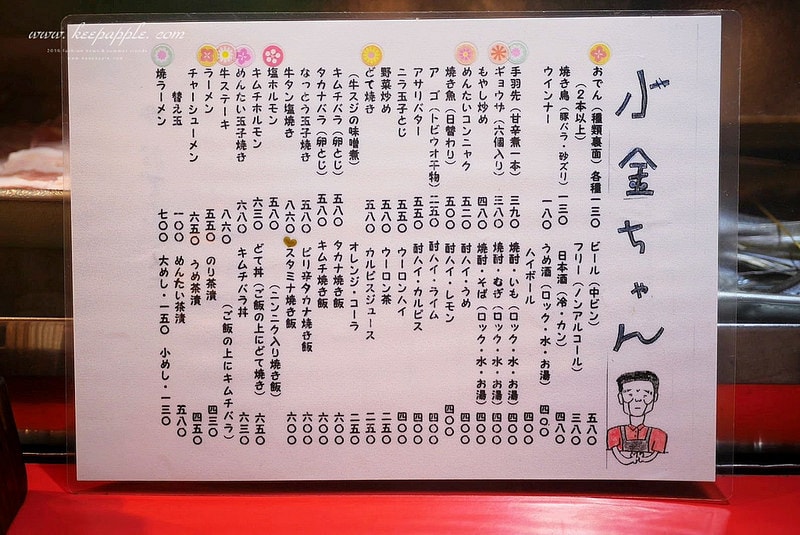 www.keepapple.com
小金ちゃん
おでん（種類裏面）各種一三〇
（２本以上）
焼き鳥（豚バラ・砂ズリ）一三〇
ウインナー 一八〇
手羽先（甘辛煮一本）三九〇
ギョウザ（六個入り）三八〇
もやし炒め 四八〇
めんたいコンニャク 五二〇
焼き魚（日替わり）五〇〇
アゴ（トビウオ干物）二五〇
アサリバター 五五〇
ニラ玉子とじ 五五〇
野菜炒め 五八〇
どて焼き
（牛スジの味噌煮） 五八〇
キムチバラ（卵とじ）五八〇
タカナバラ（卵とじ）五八〇
なっとう玉子焼き 五八〇
牛タン塩焼き 八六〇
塩ホルモン 五八〇
キムチホルモン 六三〇
めんたい玉子焼き 六八〇
牛ステーキ 八六〇
ラーメン 五五〇
チャーシューメン 六五〇
替え玉 一〇〇
焼ラーメン 七〇〇
ビール（中ビン） 五八〇
フリー（ノンアルコール） 三八〇
日本酒（冷・カン） 四八〇
うめ酒（ロック・水・お湯） 四〇〇
ハイボール 四〇〇
焼酎・いも（ロック・水・お湯）四〇〇
焼酎・むぎ（ロック・水・お湯）四〇〇
焼酎・そば（ロック・水・お湯）四〇〇
酎ハイ・うめ 四〇〇
酎ハイ・レモン 四〇〇
酎ハイ・ライム 四〇〇
酎ハイ・カルピス 四〇〇
ウーロンハイ 四〇〇
ウーロン茶 二五〇
カルピスジュース 二五〇
オレンジ・コーラ 二五〇
タカナ焼き飯 六〇〇
キムチ焼き飯 六〇〇
ピリ辛タカナ焼き飯 六〇〇
スタミナ焼き飯 六〇〇
（ニンニク入り焼き飯）
どて丼（ご飯の上にどて焼き）六五〇
キムチバラ丼 六三〇
（ご飯の上にキムチバラ）
のり茶漬 四三〇
うめ茶漬 四五〇
めんたい茶漬 五八〇
大めし・一五〇 小めし・一三〇